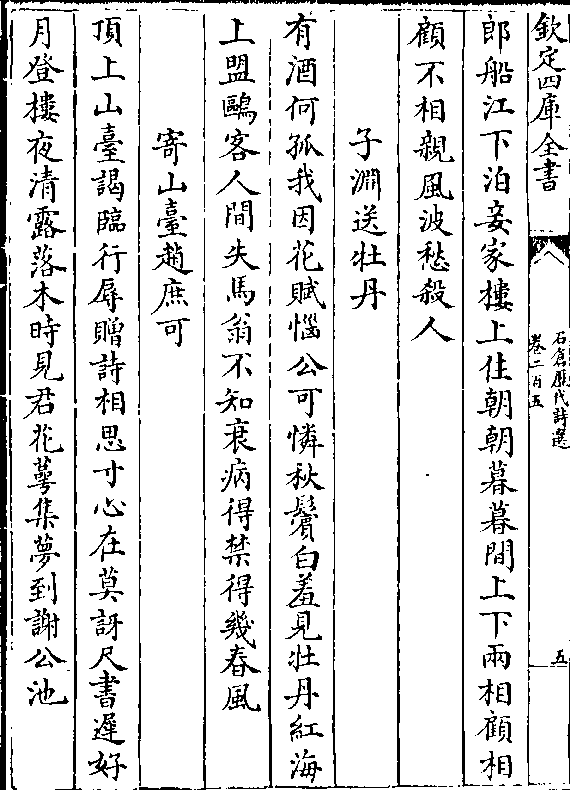 欽定四庫全書
石倉歷代詩選
卷二百五
五
郎船江下泊妾家樓上住朝朝暮暮間上下兩相顧相
顧不相親風波愁殺人
子淵送牡丹
有酒何孤我因花賦惱公可憐秋鬢白羞見牡丹紅海
上盟鷗客人間失馬翁不知衰病得禁得幾春風
寄山臺趙庶可
頂上山臺謁臨行辱贈詩相思寸心在莫訝尺書遲好
月登樓夜清露落木時見君花萼集夢到謝公池